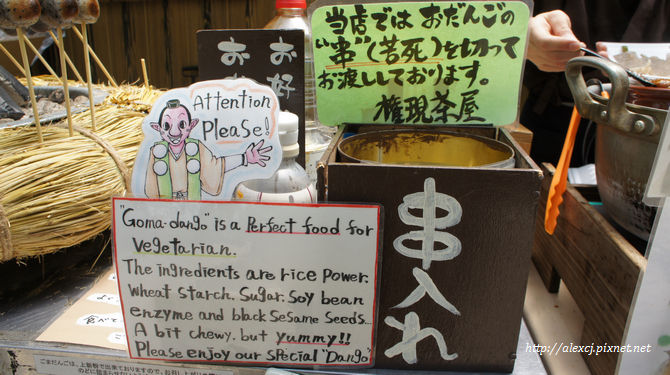 当店では おだんごの
"串"(苦死)を切って
お渡ししております。
権現茶屋
Attention
Please!
"Goma-dango" is a Perfect food for
vegetarian.
The ingredients are rice Power.
Wheat starch. Sugar. Soy bean
enzyme and black Sesame Seeds...
A bit chewy. but yummy!!
Please enjoy our special "Dango"
串入れ
http://alexcj.pixnet.net